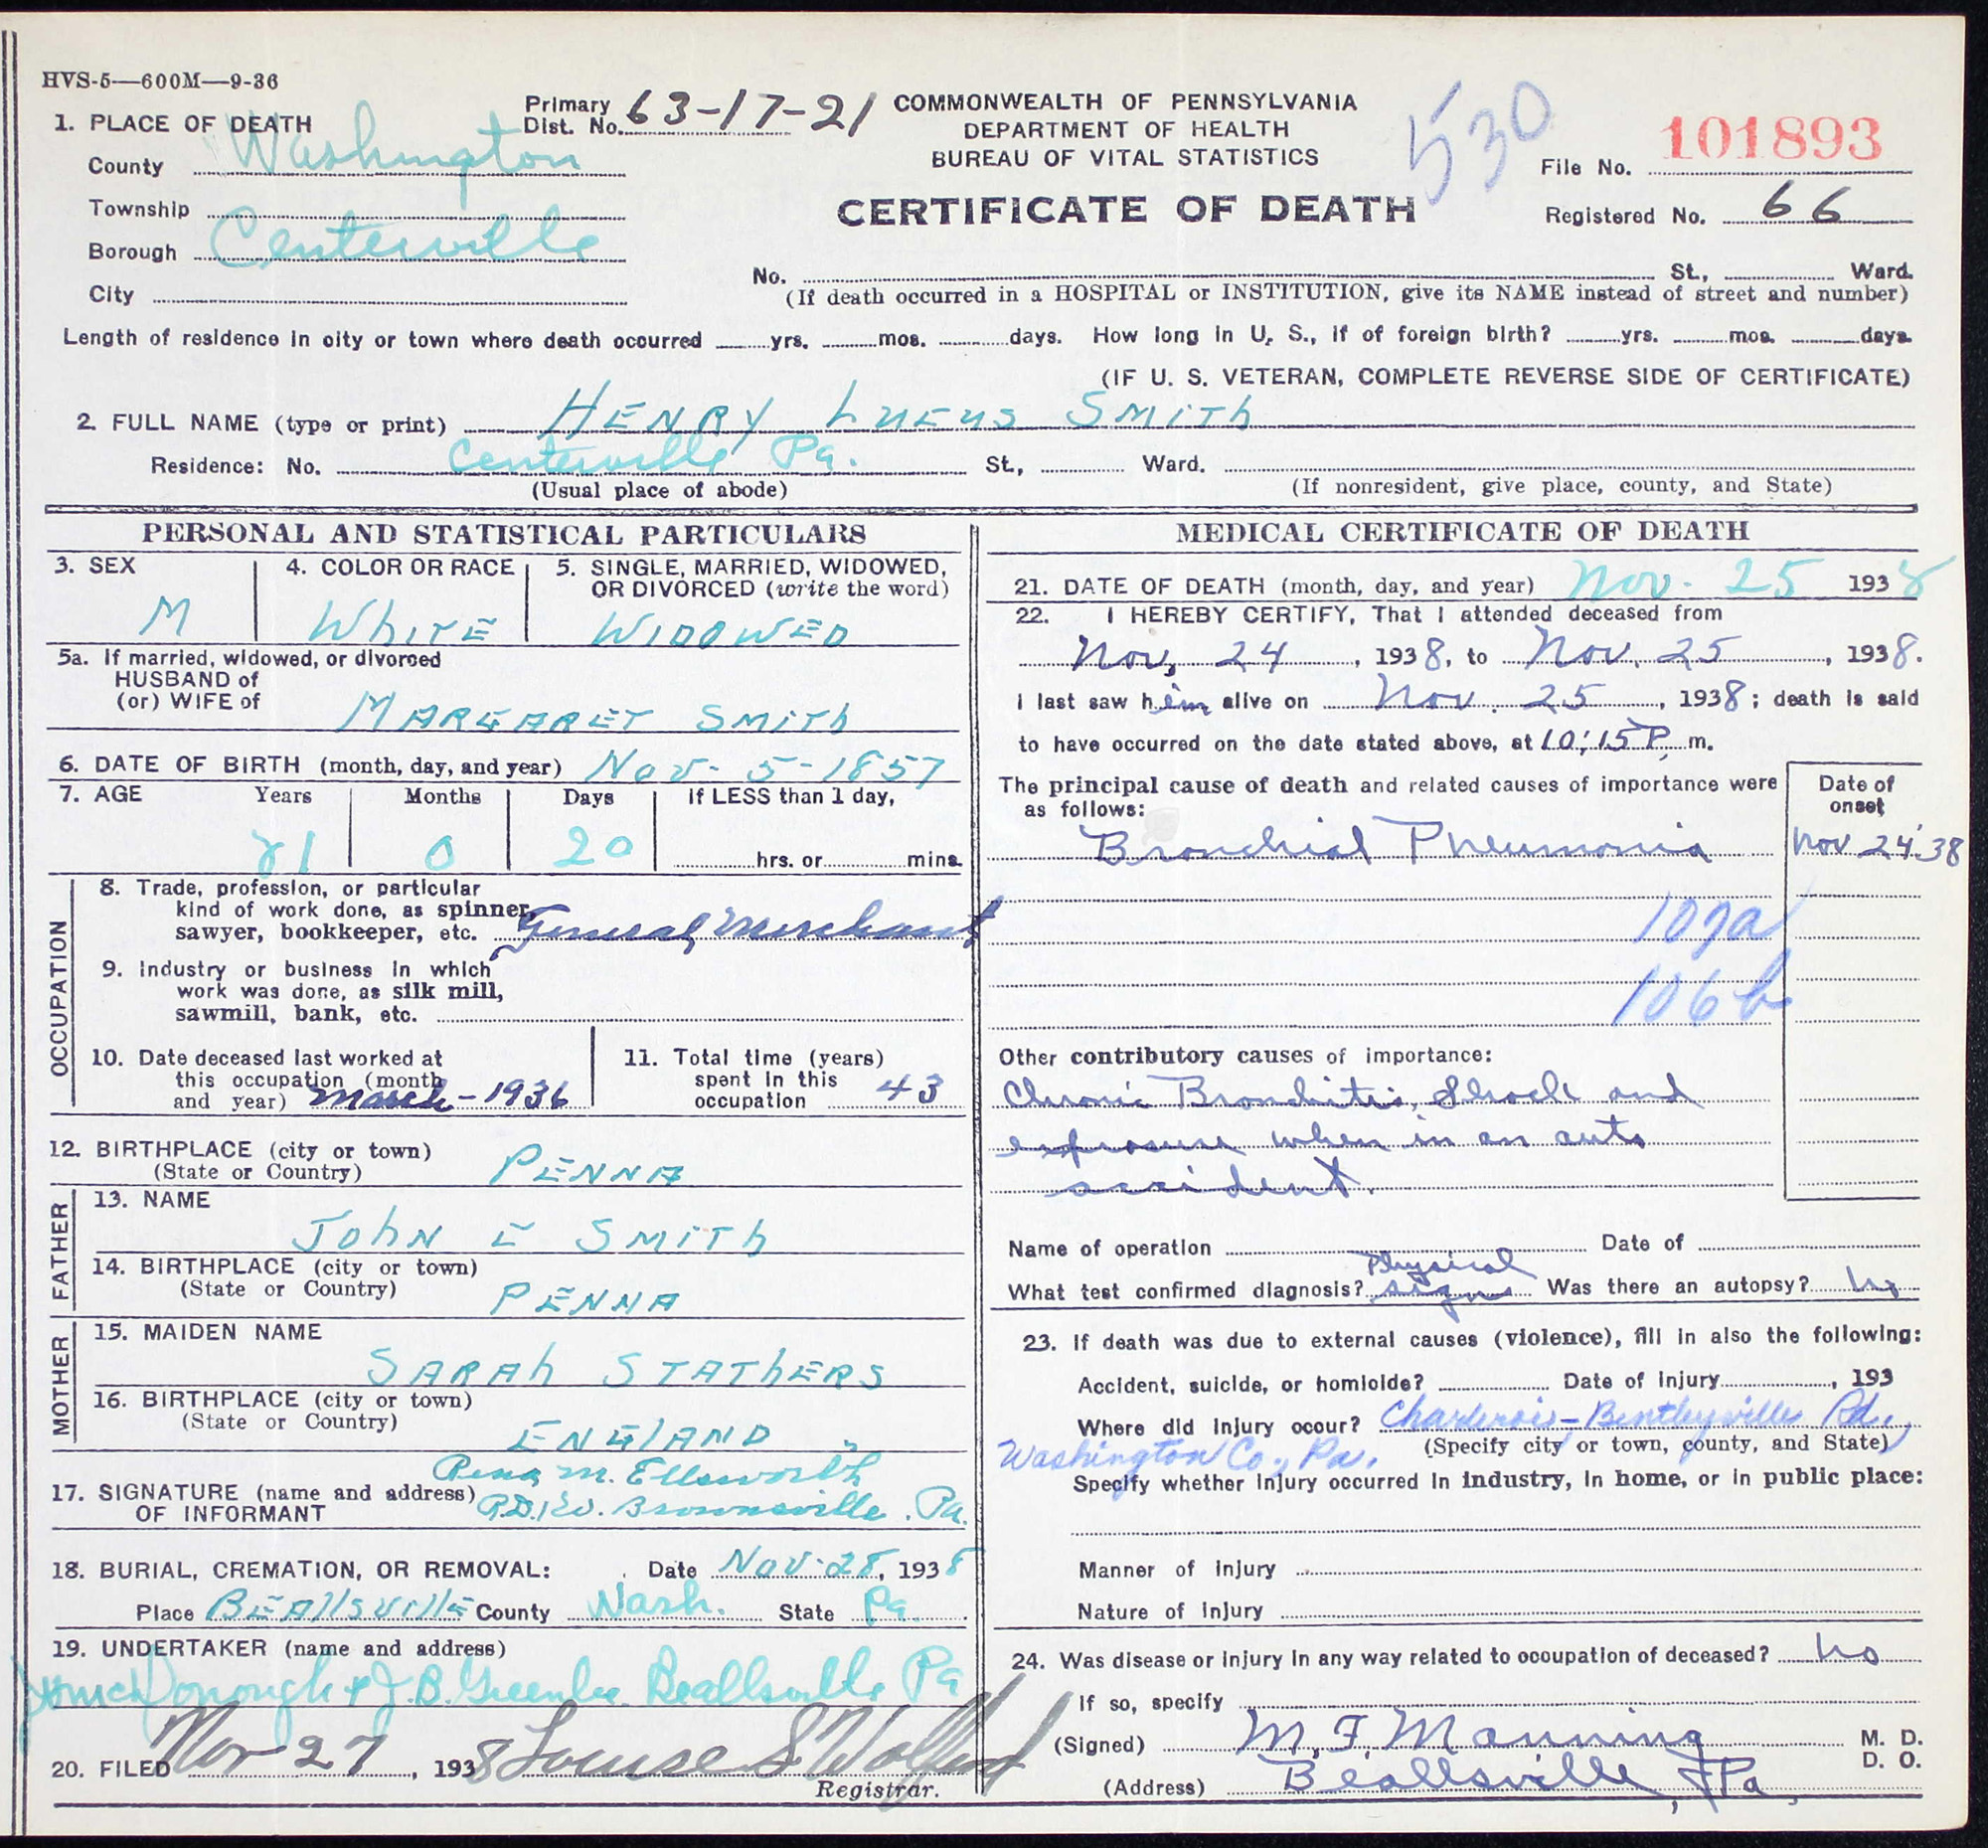 HVS-5—600M—9-36
1. PLACE OF DEATH
Primary Dist. No. 63-17-21
COMMONWEALTH OF PENNSYLVANIA
DEPARTMENT OF HEALTH
BUREAU OF VITAL STATISTICS
530
File No. 101893
County Washington
CERTIFICATE OF DEATH
Registered No. 66
Township
Borough Centerville
City
No. St., Ward.
(If death occurred in a HOSPITAL or INSTITUTION, give its NAME instead of street and number)
Length of residence in city or town where death occurred yrs. mos. days. How long in U. S., if of foreign birth? yrs. mos. days.
(IF U. S. VETERAN, COMPLETE REVERSE SIDE OF CERTIFICATE)
2. FULL NAME (type or print) HENRY Smith
Residence: No. Centerville Pa. St., Ward.
(Usual place of abode) (If nonresident, give place, county, and State)
PERSONAL AND STATISTICAL PARTICULARS
3. SEX
M
4. COLOR OR RACE
WhiTE
5. SINGLE, MARRIED, WIDOWED, OR DIVORCED (write the word)
WIDOWED
5a. If married, widowed, or divorced
HUSBAND of
(or) WIFE of
MARGARET SmiTh
6. DATE OF BIRTH (month, day, and year) Nov - 5 - 1857
7. AGE Years Months Days If LESS than 1 day,
81 0 20 hrs. or mins.
OCCUPATION
8. Trade, profession, or particular
kind of work done, as spinner,
sawyer, bookkeeper, etc. General Merchant
9. Industry or business in which
work was done, as silk mill,
sawmill, bank, etc.
10. Date deceased last worked at
this occupation (month
and year) March - 1936
11. Total time (years)
spent in this
occupation 43
12. BIRTHPLACE (city or town)
(State or Country) PENNA
FATHER
13. NAME
John E SmiTh
14. BIRTHPLACE (city or town)
(State or Country) PENNA
MOTHER
15. MAIDEN NAME
SARAh STAThERS
16. BIRTHPLACE (city or town)
(State or Country) ENGlAND
17. SIGNATURE (name and address)
OF INFORMANT
M. Ellsworth
Brownsville. Pa.
18. BURIAL, CREMATION, OR REMOVAL: Date Nov. 28, 1938
Place BEAllsvillE County Wash. State Pa.
19. UNDERTAKER (name and address)
J.B. Greenlee Beallsville Pa
20. FILED Nov 27, 1938 Louise S
Registrar.
MEDICAL CERTIFICATE OF DEATH
21. DATE OF DEATH (month, day, and year) Nov. 25 1938
22. I HEREBY CERTIFY, That I attended deceased from
Nov, 24, 1938, to Nov. 25, 1938.
I last saw him alive on Nov. 25, 1938; death is said
to have occurred on the date stated above, at 10:15 P. m.
The principal cause of death and related causes of importance were
as follows:
Date of
onset
Bronchial Pneumonia Nov 24 '38
107a
106b
Other contributory causes of importance:
Chronic Bronchitis, Shock and
exposure when in an auto
accident.
Name of operation Date of
What test confirmed diagnosis? Physical signs Was there an autopsy? no
23. If death was due to external causes (violence), fill in also the following:
Accident, suicide, or homicide? Date of injury, 193
Where did injury occur? Charleroi - Bentleyville Rd.,
Washington Co., Pa. (Specify city or town, county, and State)
Specify whether injury occurred in industry, in home, or in public place:
Manner of injury
Nature of injury
24. Was disease or injury in any way related to occupation of deceased? no
If so, specify
(Signed) M. F. Manning M. D.
D. O.
(Address) Beallsville, Pa,